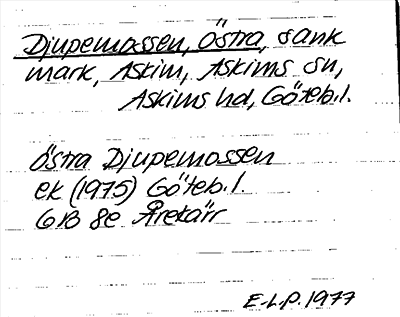 Djupemossen, Östra, sank
mark, Askim, Askims sn,
Askims hd, Göteb.l.
Östra Djupemossen
ek (1975) Göteb.l.
6B 8e Åretärr
E.L.P. 1977